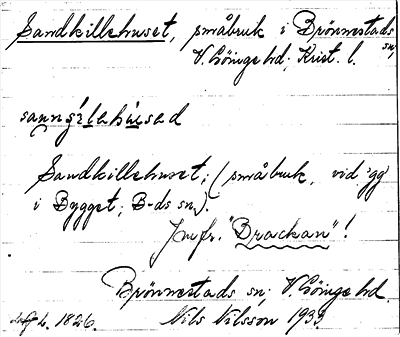 Sandkillehuset, småbruk i Brönnestads sn,
V. Göinge hd; Krist. l.
sanngilehúsed
Sandkillehuset; (småbruk, vid gg
i Bygget; B-ds sn).
Jmfr. "Brackan"!
Brönnestads sn; V. Göinge hd
1826.
Nils Nilsson 1933